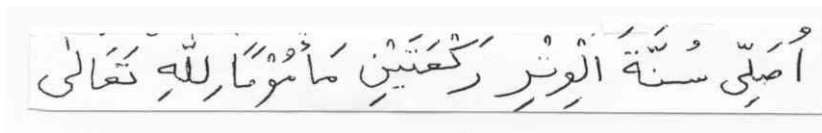 اُصَلِّى سُنَّةَ الْوِتْرِ رَكْعَتَيْنِ مَأْمُوْمًا لِلّٰهِ تَعَالٰى